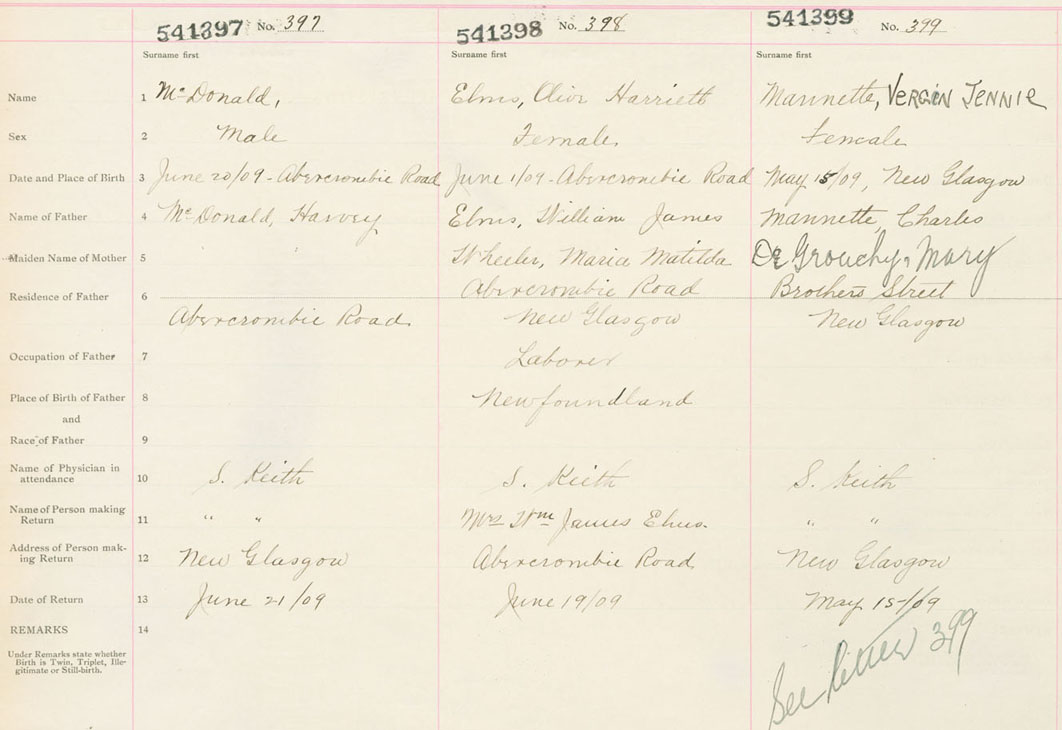 541397 No. 397 541398 No. 398 541399 No. 399
Surname first Surname first Surname first
Name 1 McDonald, Elms, Olive Harriett Mannette, VERGIN JENNIE
Sex 2 Male Female Female
Date and Place of Birth 3 June 20/09 - Abercrombie Road June 1/09 - Abercrombie Road May 15/09, New Glasgow
Name of Father 4 McDonald, Harvey Elms, William James Mannette, Charles
Maiden Name of Mother 5 Wheeler, Maria Matilda De Grouchy, Mary
Residence of Father 6 Abercrombie Road Brothers Street
Abercrombie Road New Glasgow New Glasgow
Occupation of Father 7 Laborer
Place of Birth of Father 8 Newfoundland
and
Race of Father 9
Name of Physician in
attendance 10 S. Keith S. Keith S. Keith
Name of Person making
Return 11 " " Mrs Wm James Elms. " "
Address of Person mak-
ing Return 12 New Glasgow Abercrombie Road New Glasgow
Date of Return 13 June 21/09 June 19/09 May 15/09
REMARKS 14
Under Remarks state whether
Birth is Twin, Triplet, Ille-
gitimate or Still-birth.
See letter 399